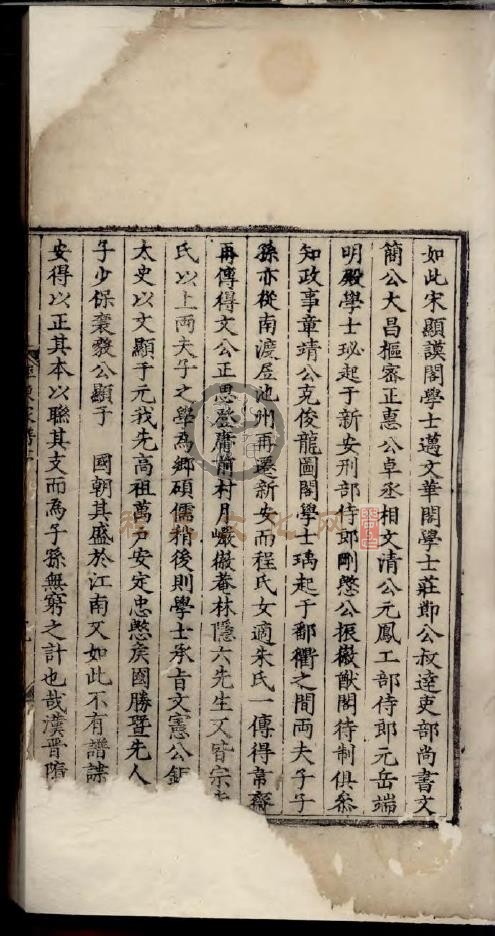 如此宋顯謨閣學士邁文華閣學士莊節公叔逵吏部尚書文
簡公大昌樞密正惠公卓丞相文清公元鳳工部侍郎元岳端
明殿學士珌起于新安刑部侍郎剛愍公振徽猷閣待制俱叅
知政事章靖公克俊龍圖閣學士瑀起于鄱衢之間兩夫子子
孫亦從南渡居池州再遷新安而程氏女適朱氏一傳得韋齋
再傳得文公正思登庸前村月巖徽菴林隱六先生又皆宗朱
氏以上兩夫子之學為鄉碩儒稍後則學士承旨文憲公鉅
太史以文顯于元我先高祖萬戶安定忠愍矦國勝暨先人
子少保襄毅公顯于 國朝其盛於江南又如此不有譜諜
安得以正其本以聯其支而為子孫無窮之計也哉漢晉隋